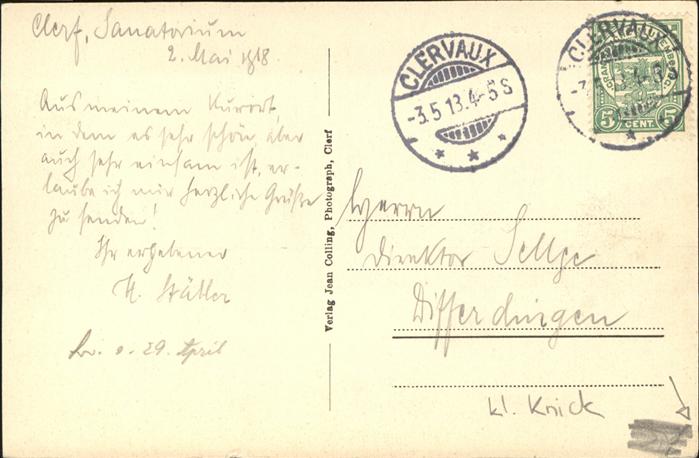 Clerf, Sanatorium
2. Mai 1918.
Aus meinem Kurort,
in dem es sehr schön, aber
auch sehr einsam ist, er-
laube ich mir herzliche Grüße
zu senden!
Ihr ergebener
H. Stätler
29. April
Verlag Jean Colling, Photograph, Clerf
CLERVAUX
-3.5 13.4-5 S
CLERVAUX
GRAND LUXEMBOURG
5 CENT. 5
Herrn
Direktor Sellge
Differdingen
kl. Knick